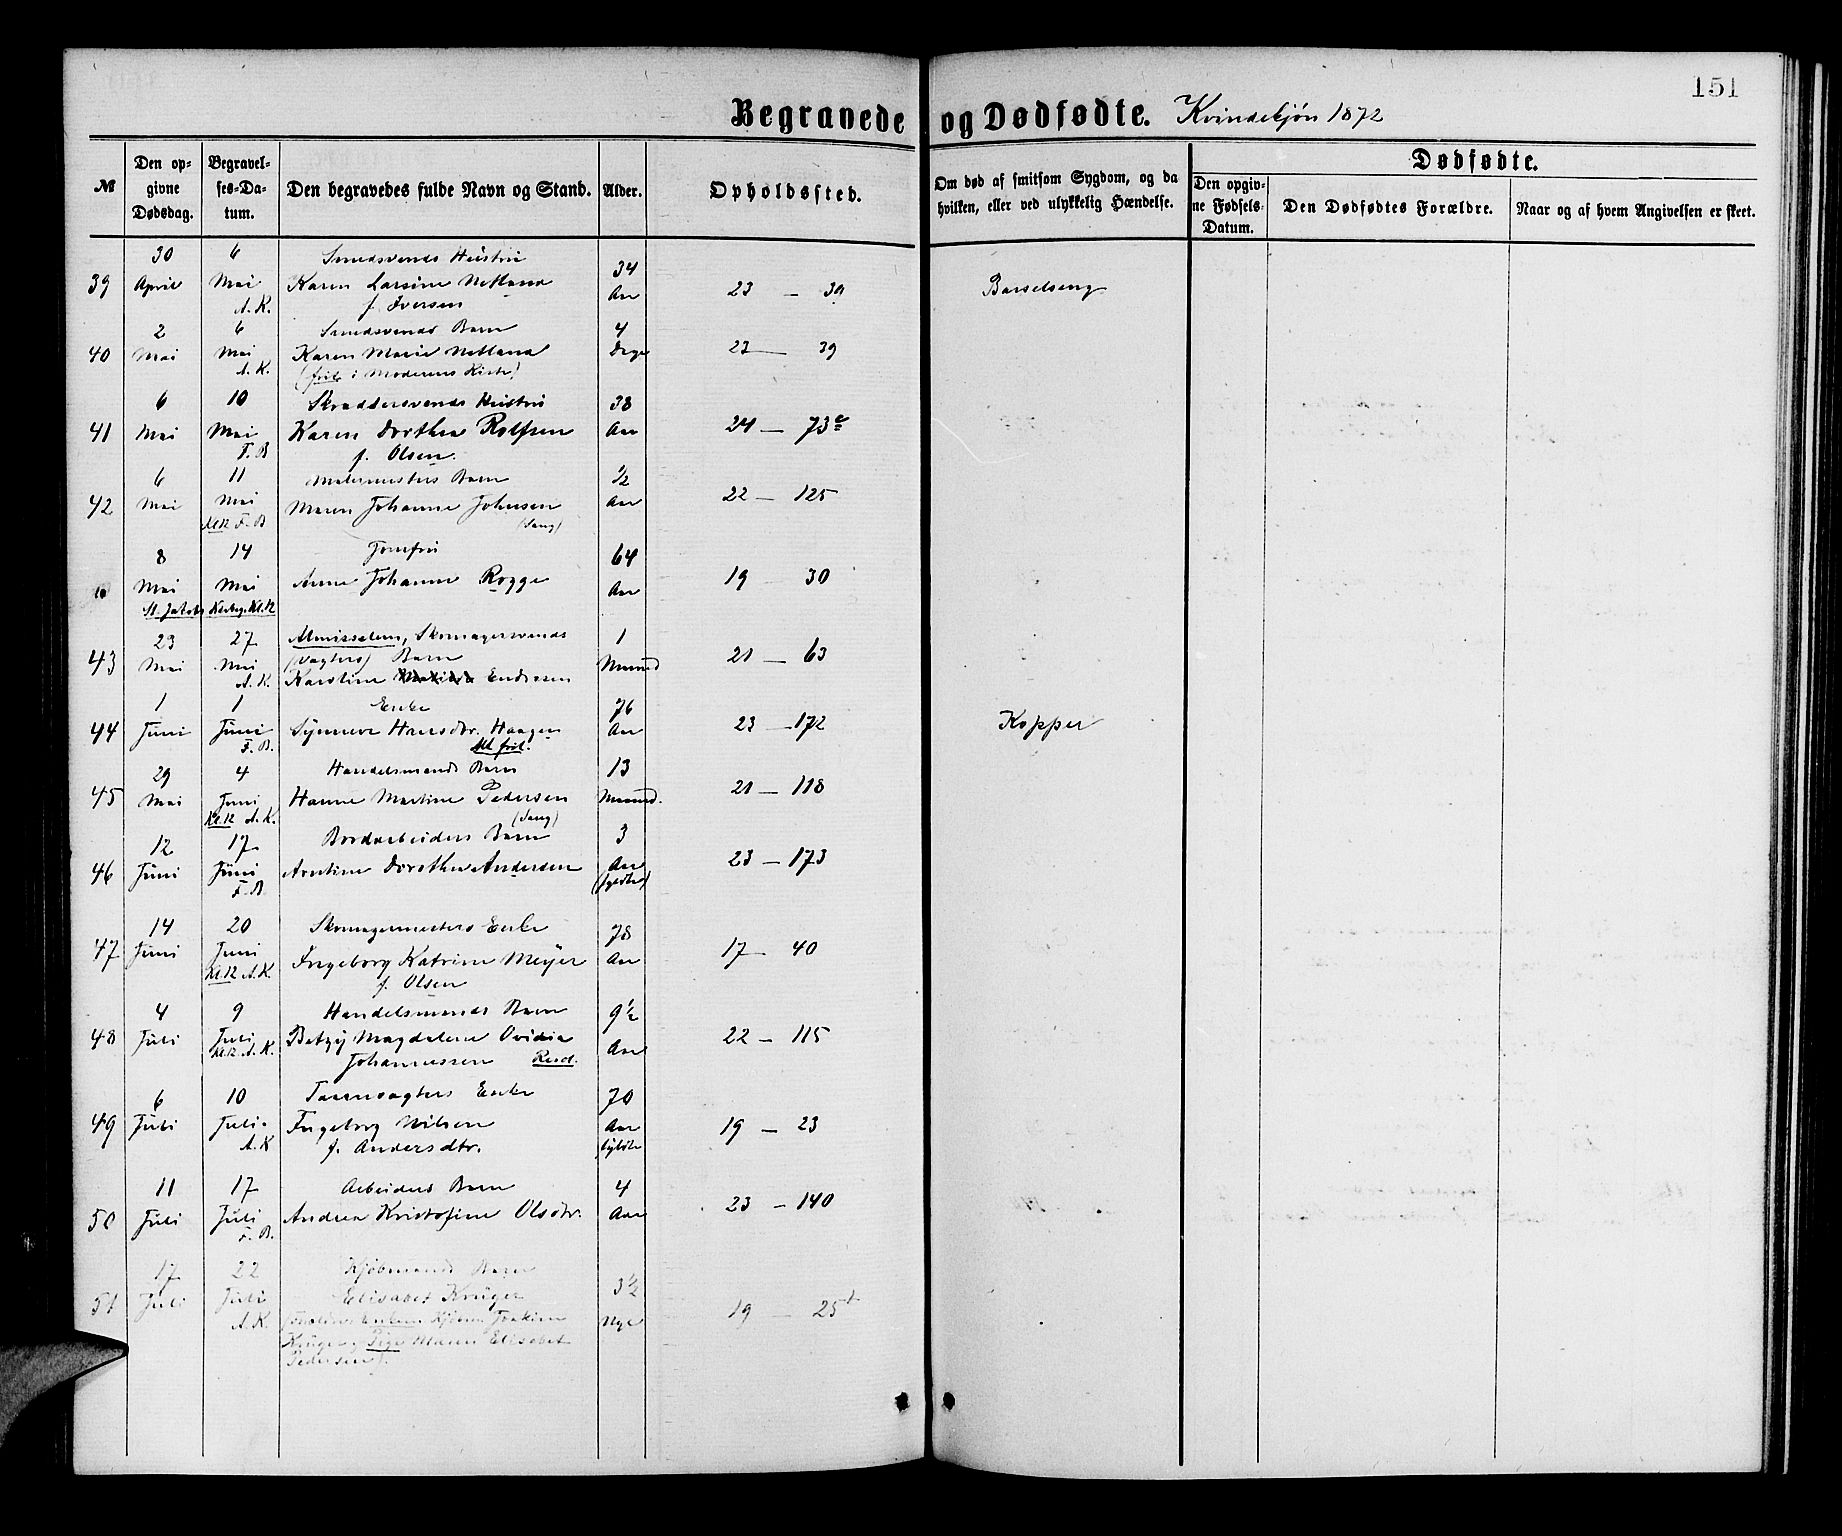 151
Begravede og Dødfødte. Kvindekjön 1872
№
Den opgivne Dødsdag.
Begravelses-Datum.
Den begravedes fulde Navn og Stand.
Alder.
Opholdssted.
Om død af smitsom Sygdom, og da hvilken, eller ved ulykkelig Hændelse.
Dødfødte.
Den opgivne Fødsels-Datum.
Den Dødfødtes Forældre.
Naar og af hvem Angivelsen er skeet.
30 6 Smedsvends Hustru 34
39 April Mai Karen Larsine Netland Aar 23 — 39 Barselseng
A. K. f. Iversen
2 6 Smedsvends Barn 4
40 Mai Mai Karen Marie Netland Dage 23 — 39
A. K. (frit i Moderens Kiste)
6 10 Skraddersvends Hustru 38
41 Mai Mai Karen Dorthea Rolfsen Aar 24 — 73c
F. B f. Olsen.
6 11 Malermesters Barn 1/2
42 Mai Mai Maren Johanne Johnsen Aar 22 — 125
Kl.12 F. B (Sang)
8 14 Jomfru 64
Mai Mai Anne Johanne Rogge Aar 19 30
St. Jakobs Kirkeg. Kl.12
23 27 Almisselem, Skomagersvends 1
43 Mai Mai (Vagters) Barn Maaned 21 — 63
A. K. Karoline Endresen
1 1 Enke 76
44 Juni Juni Synneve Hansdtr. Haagen Aar 23 — 172 Kopper
F. B. frit.
29 4 Handelsmands Barn 13
45 Mai Juni Hanne Martine Pedersen Maaned. 21 — 118
Kl.12 A. K. (Sang)
12 17 Bordarbeiders Barn 3
46 Juni Juni Arntine Dorothea Andersen Aar 23 — 173
F. B. (fyldte)
14 20 Skomagermesters Enke 78
47 Juni Juni Ingeborg Katrine Meyer Aar 17 — 40
Kl.12 A. K f. Olsen
4 9 Handelsmands Barn 9 1/2
48 Juli Juli Betzy Magdalene Ovidia Aar 22 — 115
Kl.12 A. K. Johannessen Resd.
6 10 Taarnvagters Enke 70
49 Juli Juli Ingeborg Nilsen Aar 19 — 23
A. K f. Andersdtr. fyldte
11 17 Arbeiders Barn 4
50 Juli Juli Andrea Kristofine Olsdtr. Aar 23 — 140
F. B.
17 22 Kjöbmands Barn 3 1/2
51 Juli Juli Elisabet Krüger 19 — 25
A. K. Joakim
Krüger Pige Maren Elisabet
Pedersen).